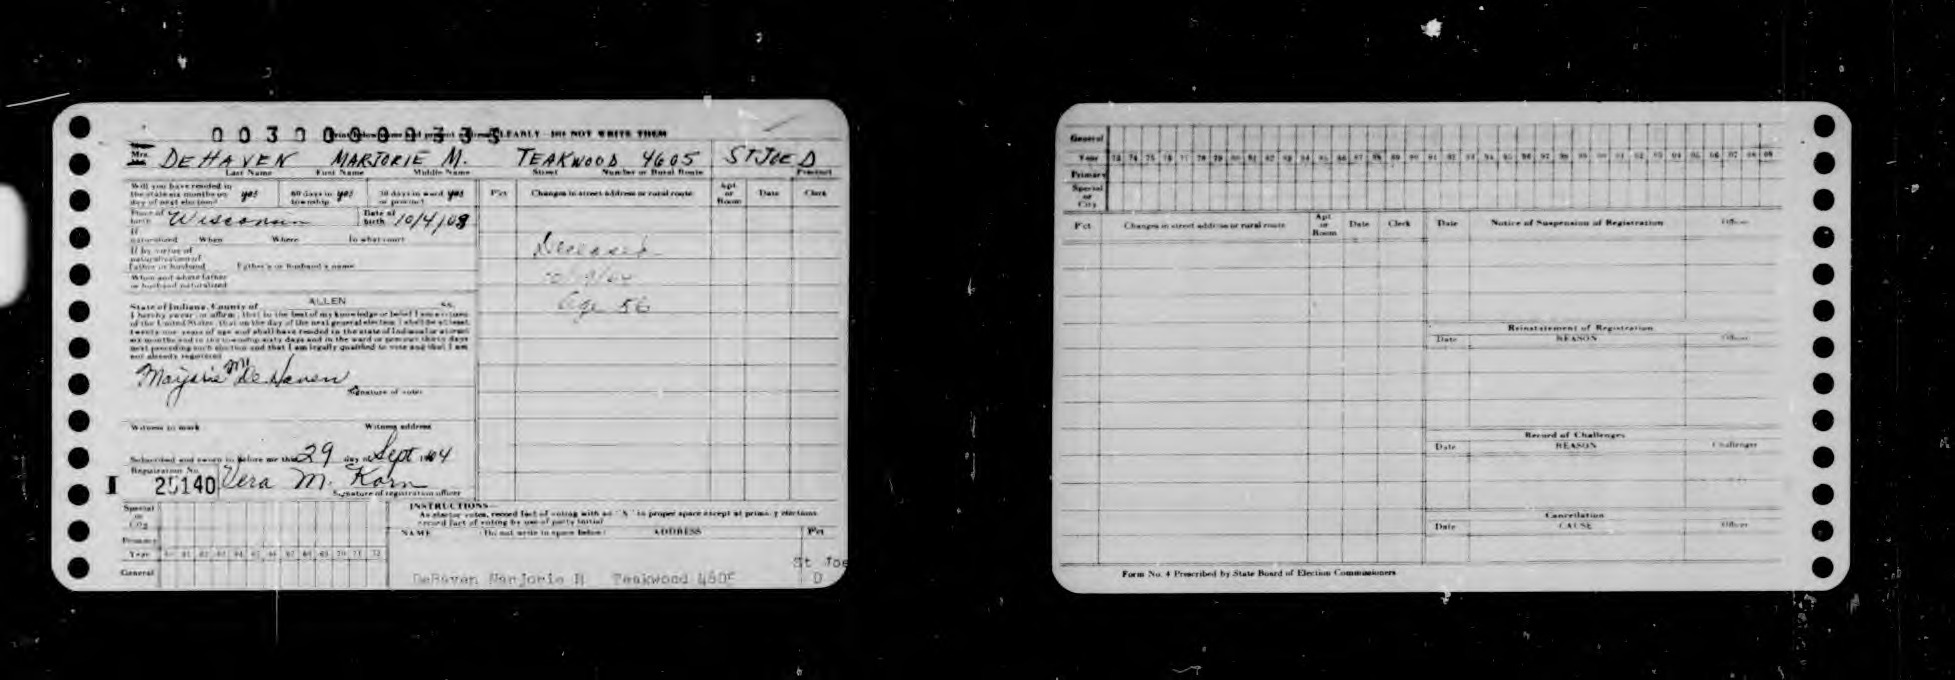 0 0 3 0 0 0 0 0 3 3 5
CLEARLY DO NOT WRITE THEM
Mrs. DEHAVEN MARJORIE M. TEAKWOOD 4605 ST JOE D
Last Name First Name Middle Name Street Number or Rural Route Precinct
Will you have resided in
the state six months on
day of next election? yes 60 days in township yes 30 days in ward or precinct yes
P'ct Changes in street address or rural route Apt. or Room Date Clerk
Place of birth Wisconsin Date of birth 10/4/08
If
naturalized When Where In what court
If by virtue of
naturalization of
father or husband Father's or husband's name
When and where father
or husband naturalized
Deceased
Age 56
State of Indiana, County of ALLEN ss.
I hereby swear or affirm, that to the best of my knowledge or belief I am a citizen
of the United States, that on the day of the next general election I shall be at least
twenty one years of age and shall have resided in the state of Indiana for at least
six months and in the township sixty days and in the ward or precinct thirty days
next preceding such election and that I am legally qualified to vote and that I am
not already registered
Marjorie M De Haven
Signature of voter
Witness to mark Witness address
Subscribed and sworn to before me this 29 day of Sept 1964
Registration No.
25140 Vera M. Korn
Signature of registration officer
Special
or
City
Primary
Year 61 62 63 64 65 66 67 68 69 70 71 72
General
INSTRUCTIONS—
As elector votes, record fact of voting with an "X" in proper space except at primary elections
record fact of voting by use of party initial
NAME (Do not write in space below) ADDRESS P'ct
St Joe
DeHaven Marjorie M Teakwood 4605 D
General
Year 73 74 75 76 77 78 79 80 81 82 83 84 85 86 87 88 89 90 91 92 93 94 95 96 97 98 99
Primary
Special
or
City
P'ct Changes in street address or rural route Apt. or Room Date Clerk
Date Notice of Suspension of Registration Officer
Reinstatement of Registration
Date REASON Officer
Record of Challenges
Date REASON Challenger
Cancellation
Date CAUSE Officer
Form No. 4 Prescribed by State Board of Election Commissioners